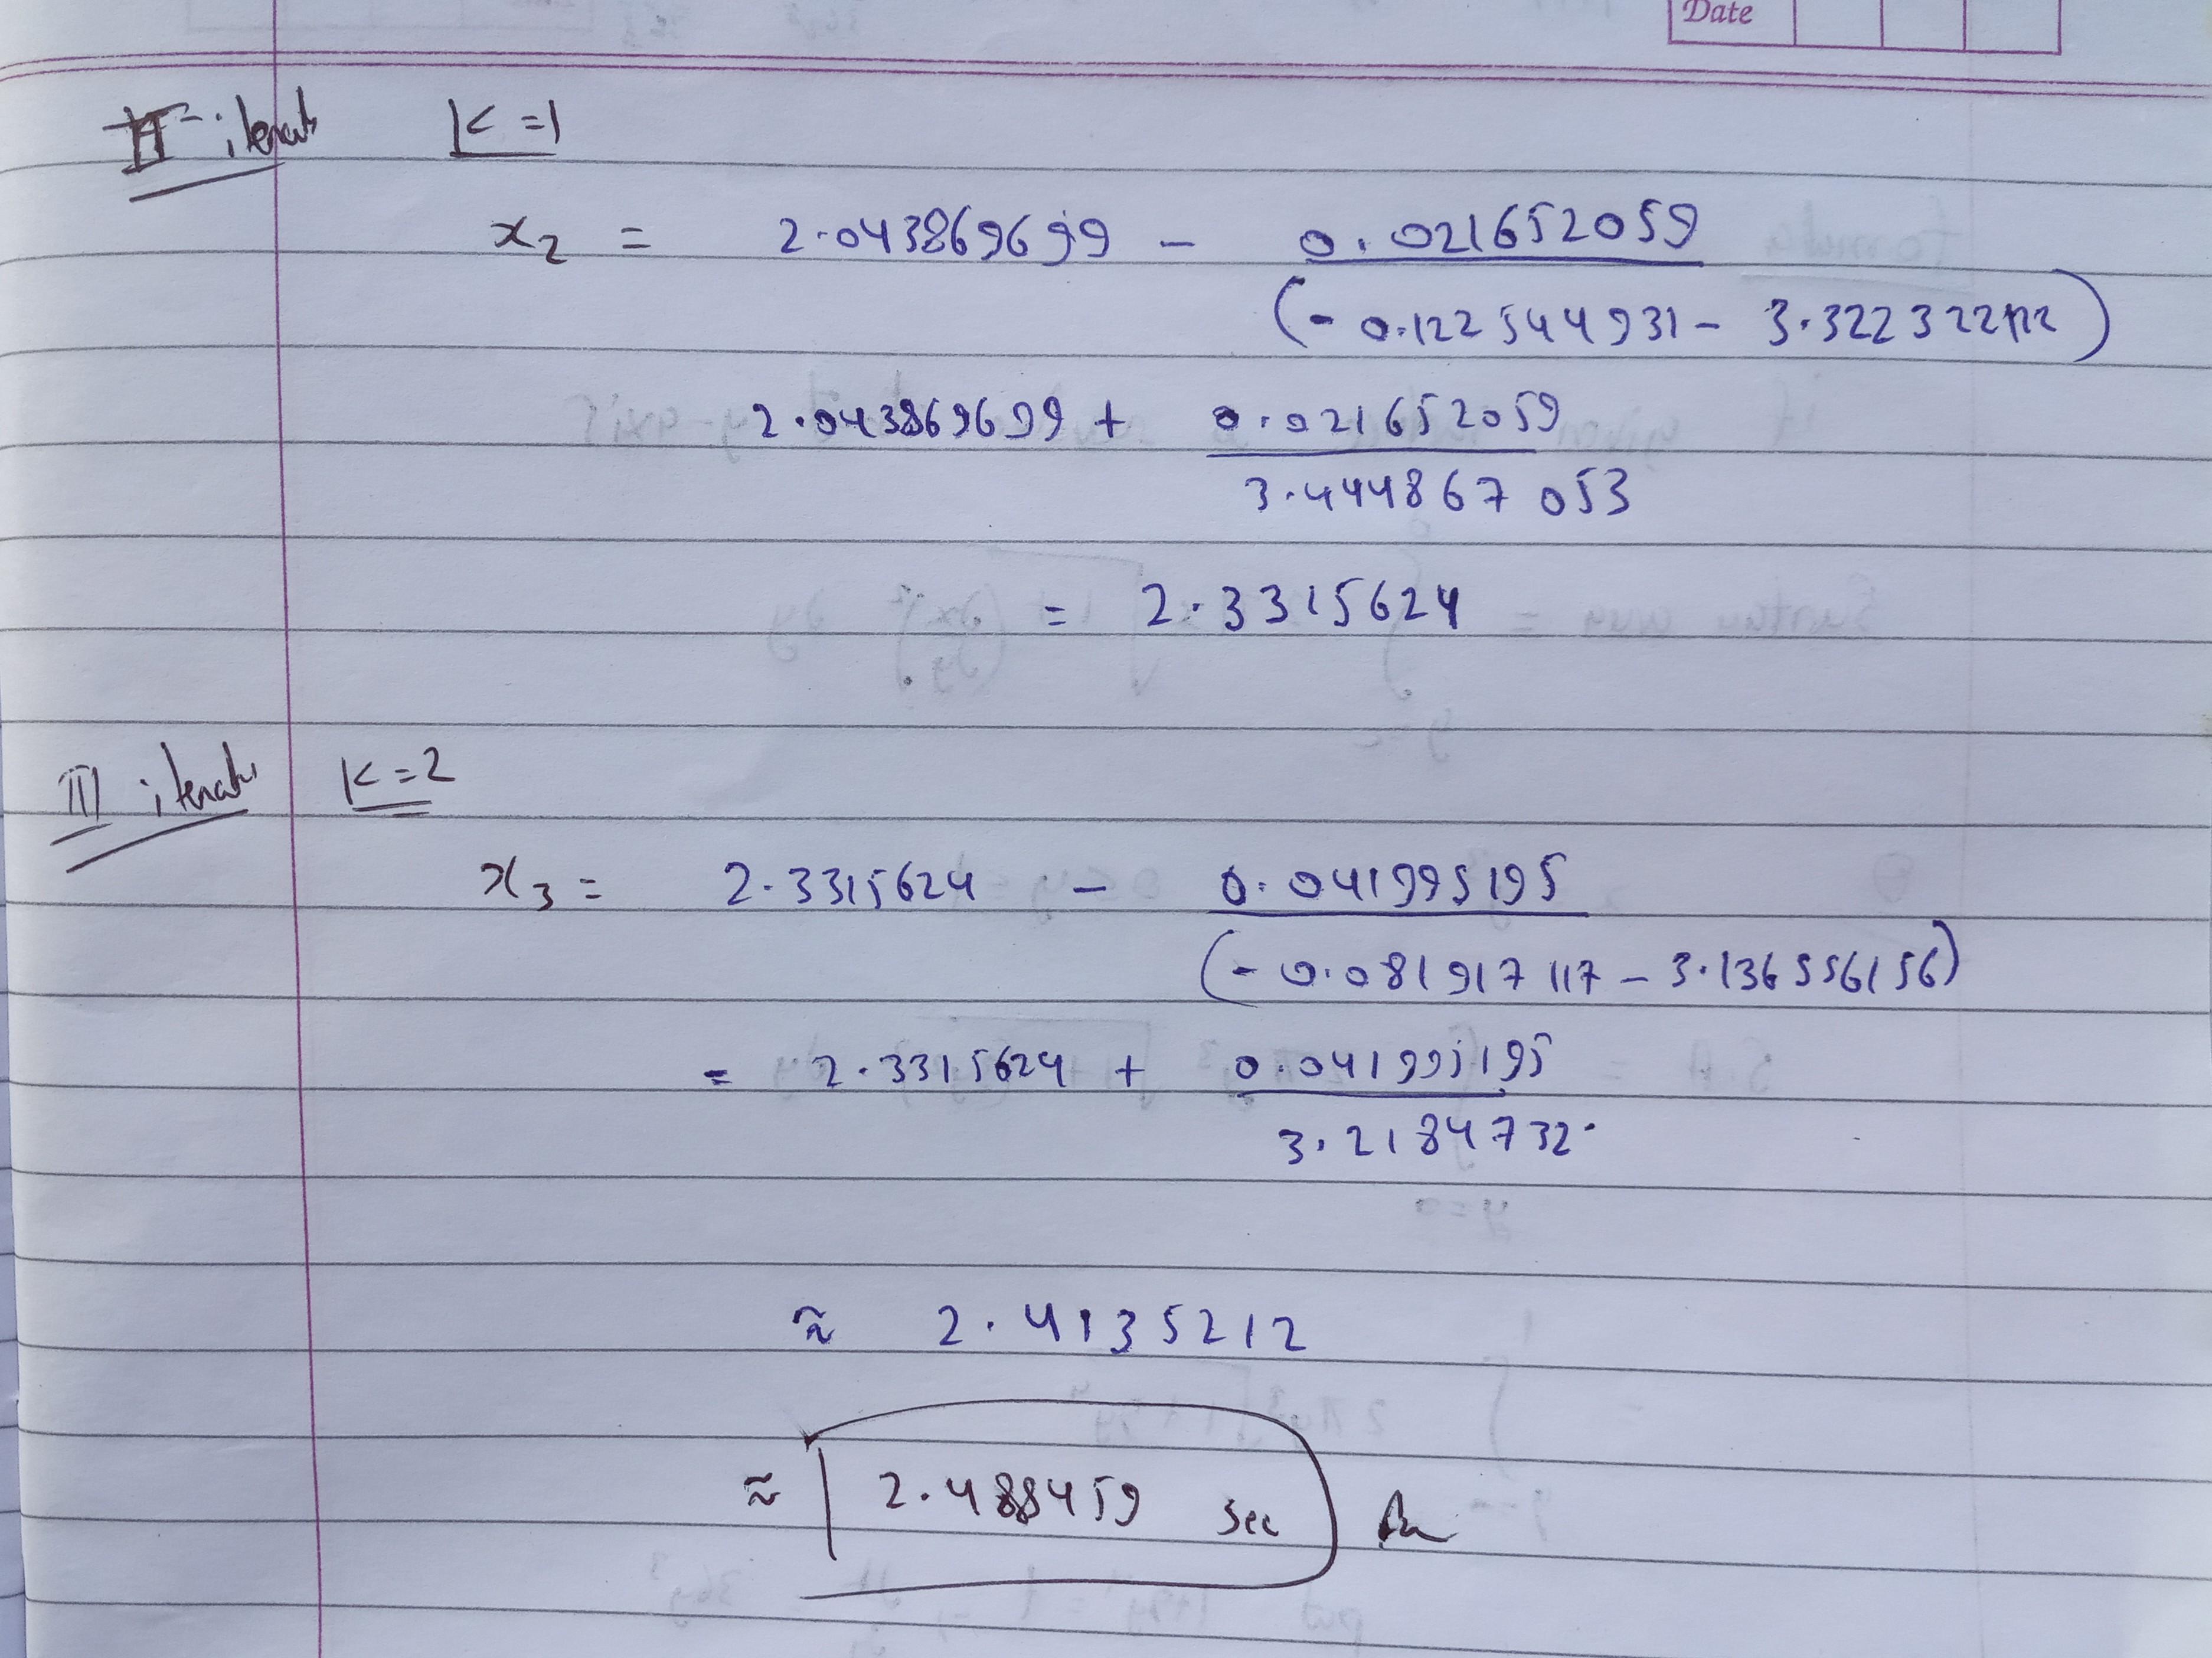 Date
II iterat K=1
x2 = 2.043869699 - 0.021652059
(-0.122544931 - 3.322322112)
2.043869699 + 0.021652059
3.444867053
= 2.3315624
III iterat K=2
x3 = 2.3315624 - 0.041995195
(-0.081917117 - 3.136556156)
= 2.3315624 + 0.041995195
3.2184732
≈ 2.4135212
≈ 2.488459 sec